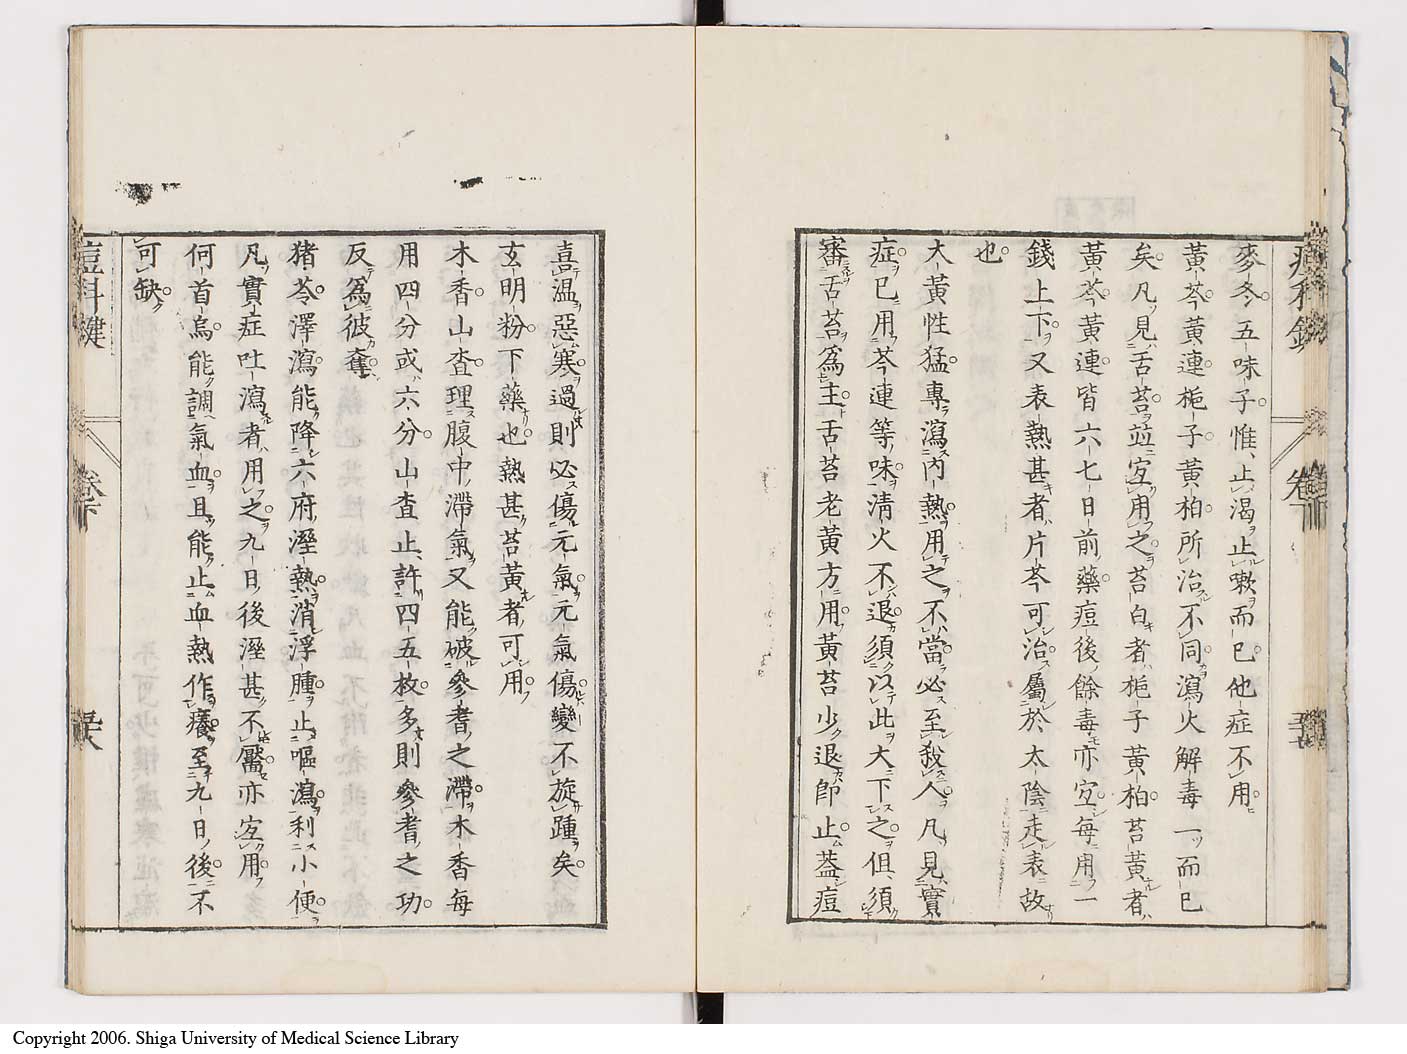 麥冬五味子惟止渴止嗽而已他症不用
黃芩黃連梔子黃柏所治不同瀉火解毒一而已
矣凡見舌苔竝宜用之苔白者梔子黃柏苔黃者
黃芩黃連皆六七日前藥痘後餘毒亦宜每用一
錢上下又表熱甚者片芩可治屬於太陰走表故
也
大黃性猛專瀉內熱用之不當必至殺人凡見實
症已用芩連等味淸火不退須以此大下之但須
審舌苔爲主舌苔老黃方用黃苔少退即止葢痘
喜温惡寒過則必傷元氣元氣傷變不旋踵矣
玄明粉下藥也熱甚苔黃者可用
木香山查理腹中滯氣又能破參耆之滯木香每
用四分或六分山查止許四五枚多則參耆之功
反爲彼奪
猪苓澤瀉能降六府溼熱消浮腫止嘔瀉利小便
凡實症吐瀉者用之九日後溼甚不靨亦宜用
何首烏能調氣血且能止血熱作癢至九日後不
可缺
痘科鍵
卷下
Copyright 2006. Shiga University of Medical Science Library